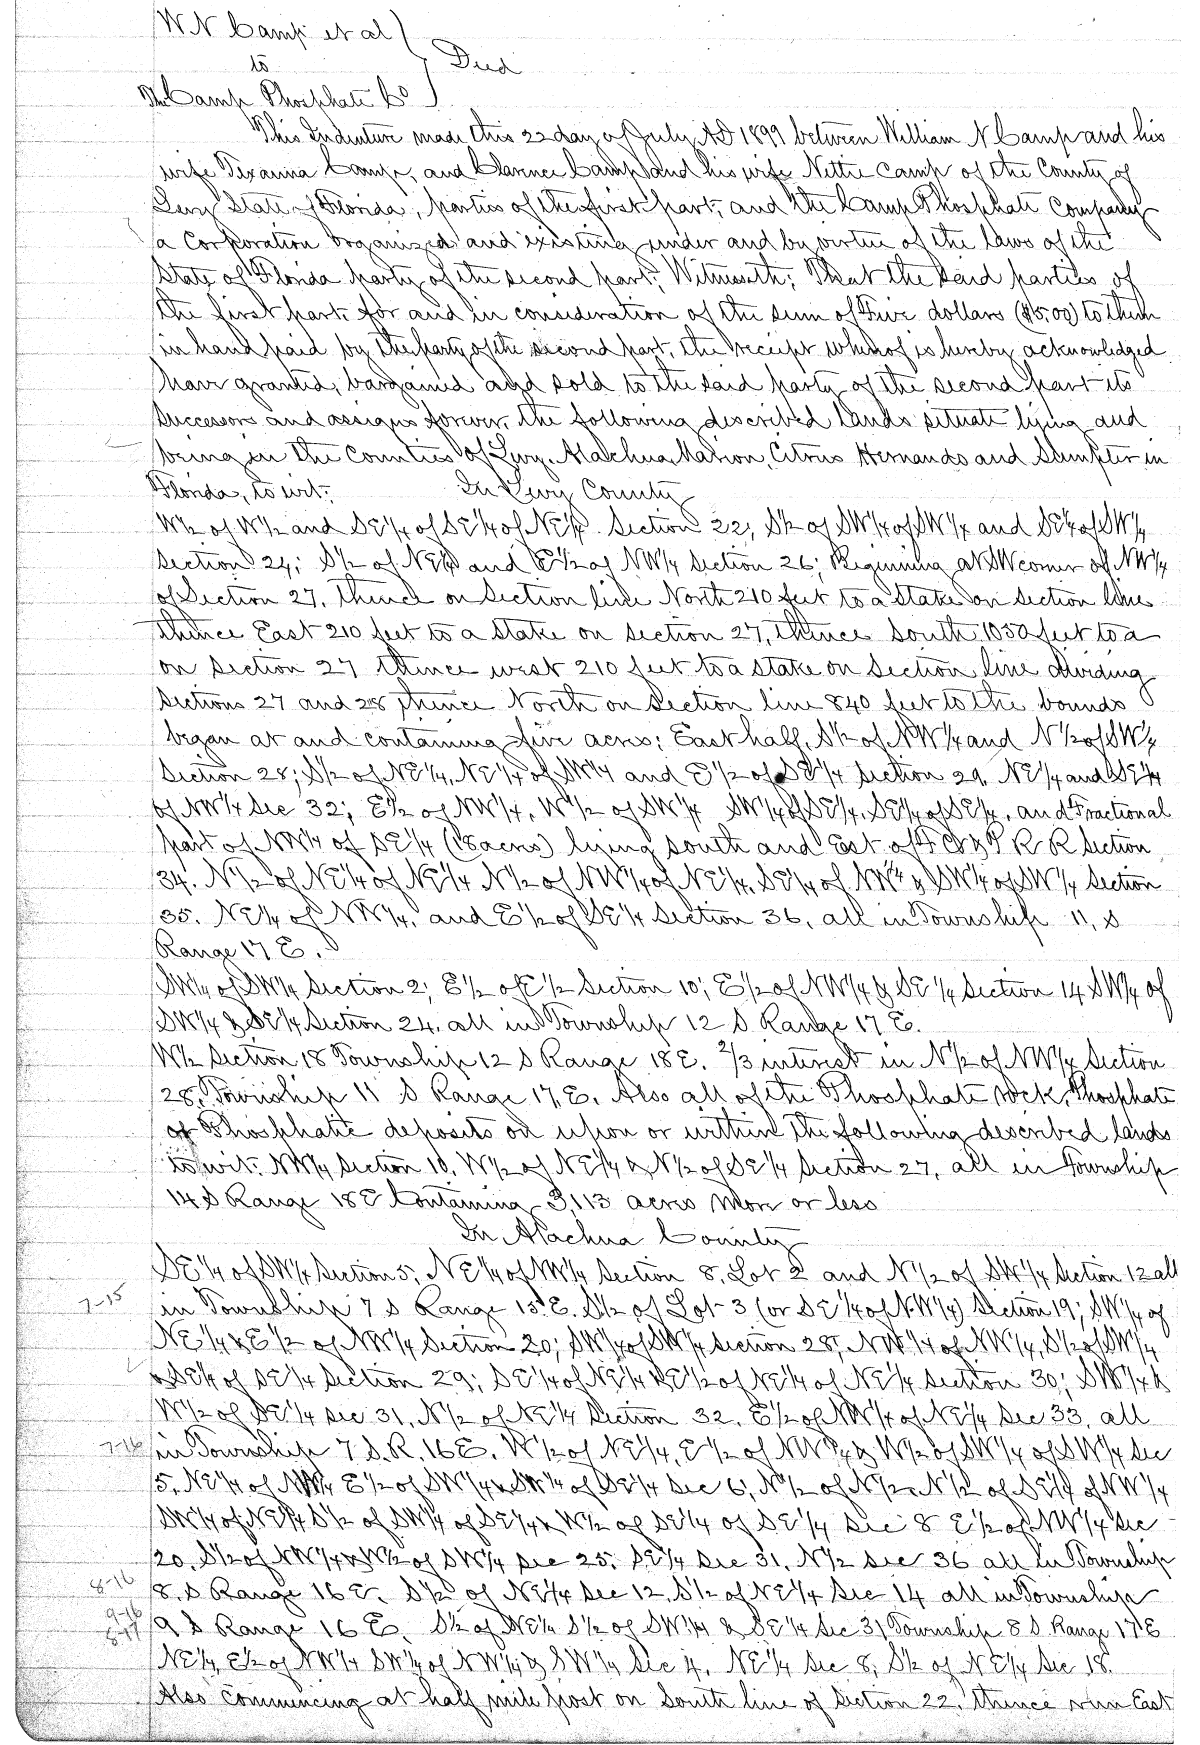 W N Camp et al
to
Deed
The Camp Phosphate Co
This Indenture made this 22 day of July AD 1899 between William N Camp and his
wife Texanna Camp, and Clarence Camp and his wife Nettie Camp of the County of
Levy State of Florida, parties of the first part, and the Camp Phosphate Company
a Corporation organized and existing under and by virtue of the laws of the
State of Florida party of the second part, Witnesseth; That the said parties of
the first part for and in consideration of the sum of Five dollars ($5.00) to them
in hand paid by the party of the second part, the receipt whereof is hereby acknowledged
have granted, bargained and sold to the said party of the second part its
successors and assigns forever, the following described lands situate lying and
being in the Counties of Levy, Alachua, Marion, Citrus Hernando and Sumpter in
Florida, to wit: In Levy County
W½ of W½ and SE¼ of SE¼ of NE¼ Section 22; S½ of SW¼ of SW¼ and SE¼ of SW¼
Section 24; S½ of NE¼ and E½ of NW¼ Section 26; Beginning at SW corner of NW¼
of Section 27, thence on section line North 210 feet to a stake on section line
thence East 210 feet to a stake on section 27, thence south 1050 feet to a
on section 27 thence west 210 feet to a stake on section line dividing
Sections 27 and 28 thence North on section line 840 feet to the bounds
began at and containing five acres; East half, S½ of NW¼ and N½ of SW¼
Section 28; S½ of NE¼, NE¼ of SW¼ and E½ of SE¼ Section 29, NE¼ and SE¼
of NW¼ Sec 32; E½ of NW¼, W½ of SW¼ SW¼ of SE¼, SE¼ of SE¼, and Fractional
part of NW¼ of SE¼ (18 acres) lying south and East of F C & P R R Section
34. N½ of NE¼ of NE¼ N½ of NW¼ of NE¼, SE¼ of NW¼ & SW¼ of SW¼ Section
35. NE¼ of NW¼, and E½ of SE¼ Section 36, all in Township 11, S
Range 17 E.
SW¼ of SW¼ Section 2; E½ of E½ Section 10; E½ of NW¼ & SE¼ Section 14 SW¼ of
SW¼ & SE¼ Section 24, all in Township 12 S Range 17 E.
W½ Section 18 Township 12 S Range 18 E. 2/3 interest in N½ of NW¼ Section
28, Township 11 S Range 17, E. Also all of the Phosphate rock, Phosphate
or Phosphatic deposits on upon or within the following described lands
to wit: NW¼ Section 10, W½ of NE¼ & N½ of SE¼ Section 27, all in Township
14 S Range 18 E Containing 3,113 acres more or less
In Alachua County
SE¼ of SW¼ Section 5; NE¼ of NW¼ Section 8, Lot 2 and N½ of SW¼ Section 12 all
7-15
in Township 7 S Range 15 E. S½ of Lot 3 (or SE¼ of NW¼) Section 19; SW¼ of
NE¼ & E½ of NW¼ Section 20; SW¼ of SW¼ Section 28; NW¼ of NW¼, S½ of SW¼
& SE¼ of SE¼ Section 29; SE¼ of NE¼ & E½ of NE¼ of NE¼ Section 30; SW¼ &
W½ of SE¼ Sec 31, N½ of NE¼ Section 32, E½ of NW¼ of NE¼ Sec 33, all
7-16
in Township 7 S. R. 16 E. W½ of NE¼, E½ of NW¼ & W½ of SW¼ of SW¼ Sec
5, NE¼ of NW¼ E½ of SW¼ & SW¼ of SE¼ Sec 6, N½ of N½ & N½ of SE¼ of NW¼
SW¼ of NE¼ S½ of SW¼ of SE¼ & W½ of SE¼ of SE¼ Sec 8 E½ of NW¼ Sec
20, S½ of NW¼ & W½ of SW¼ Sec 25, SE¼ Sec 31, N½ Sec 36 all in Township
8-16
8, S Range 16 E. S½ of NE¼ Sec 12, S½ of NE¼ Sec 14 all in Township
9-16
8-17
9 S Range 16 E. S½ of NE¼ S½ of SW¼ & SE¼ Sec 31, Township 8 S Range 17 E
NE¼, E½ of NW¼ SW¼ of NW¼ & SW¼ Sec 4, NE¼ Sec 8, S½ of NE¼ Sec 18.
Also Commencing at half mile post on South line of Section 22, thence run East